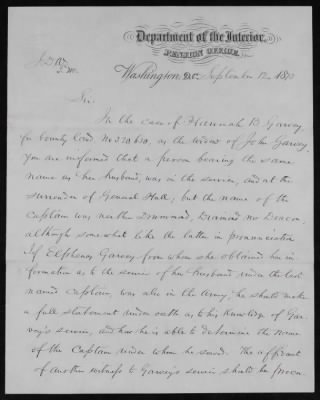 Department of the Interior,
PENSION OFFICE,
Washington D.C. September 12 1873
Sir.
In the case of Hannah B. Garvey,
for bounty land No 320,610, as the widow of John Garvey,
you are informed that a person bearing the same
name as her husband, was in the service, and at the
surrender of General Hull; but the name of the
Captain was neither Drummond, Diamond nor Deacon,
although somewhat like the latter in pronunciation
If Elpheus Garvey from whom she obtained her in-
formation as to the service of her husband under the last
named Captain, was also in the Army, he should make
a full statement under oath as to his knowledge of Gar-
vey's service, and how he is able to determine the name
of the Captain under whom he served. The affidavit
of another witness to Garvey's service should be